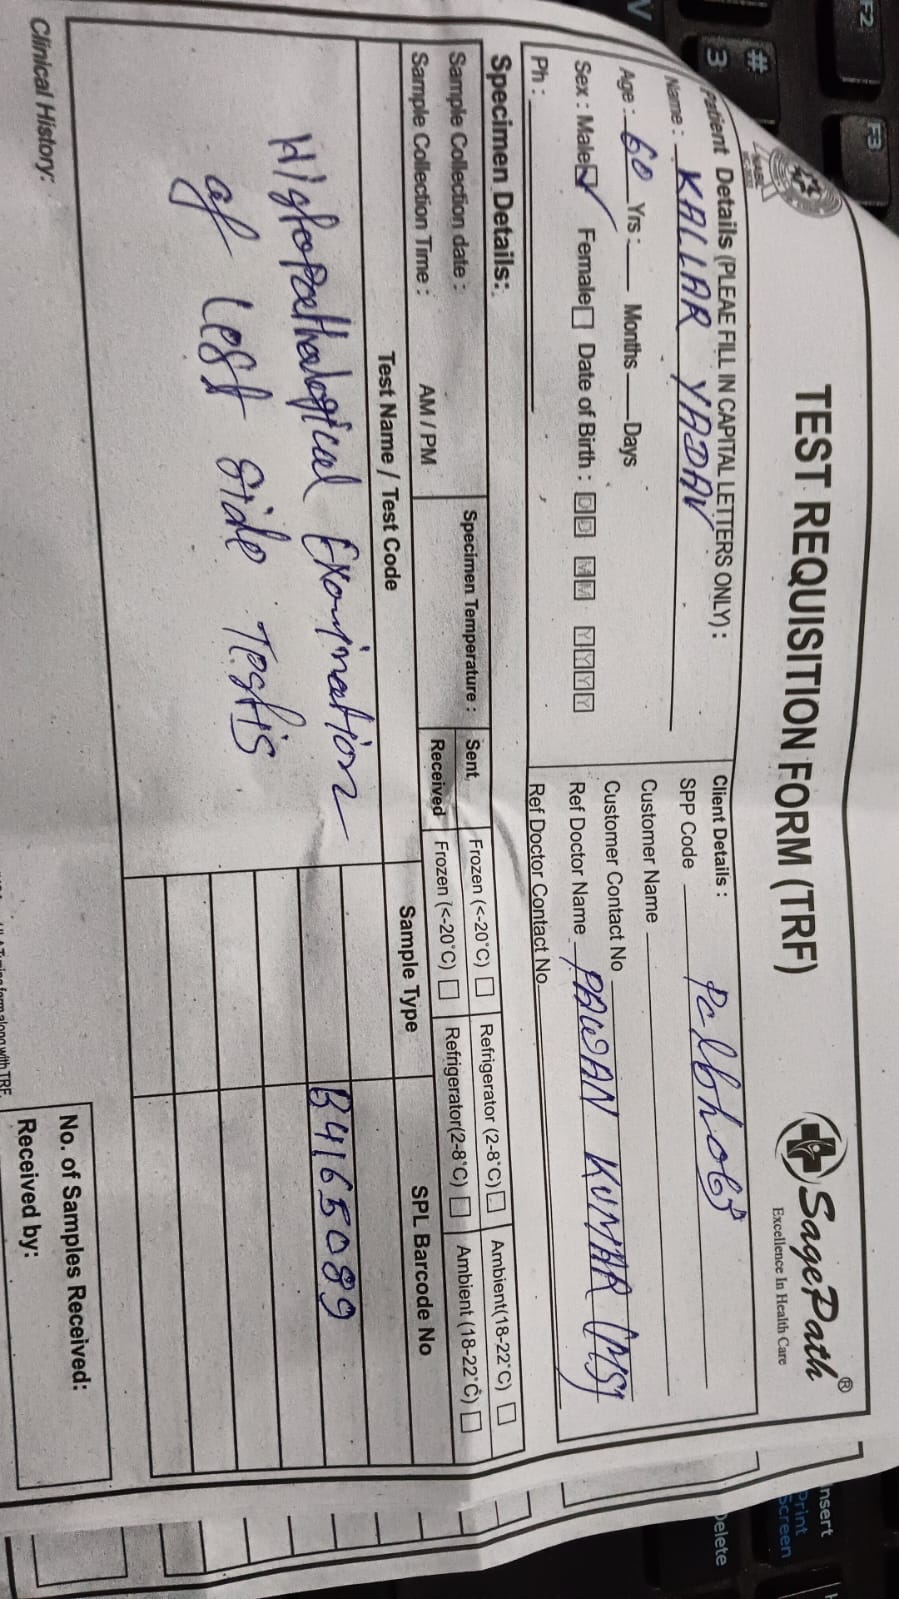 TEST REQUISITION FORM (TRF)
SagePath®
Excellence In Health Care
Patient Details (PLEAE FILL IN CAPITAL LETTERS ONLY) :
Name : KALLAR YADAV
Age : 60 Yrs : Months Days
Sex : Male ☑ Female ☐ Date of Birth : D D M M Y Y Y Y
Ph :
Client Details :
SPP Code
Customer Name
Customer Contact No
Ref Doctor Name PAWAN KUMAR (MS)
Ref Doctor Contact No
Specimen Details:
Sample Collection date :
Sample Collection Time : AM / PM
Specimen Temperature :
Sent Frozen (<-20°C) ☐ Refrigerator (2-8°C) ☐ Ambient(18-22°C) ☐
Received Frozen (<-20°C) ☐ Refrigerator(2-8°C) ☐ Ambient (18-22°C) ☐
Test Name / Test Code Sample Type SPL Barcode No
Histopathological Examination B4165089
of Left Side Testis
Clinical History:
No. of Samples Received:
Received by:
form along with TRF
F2
F3
#
3
Insert
Print
Screen
Delete